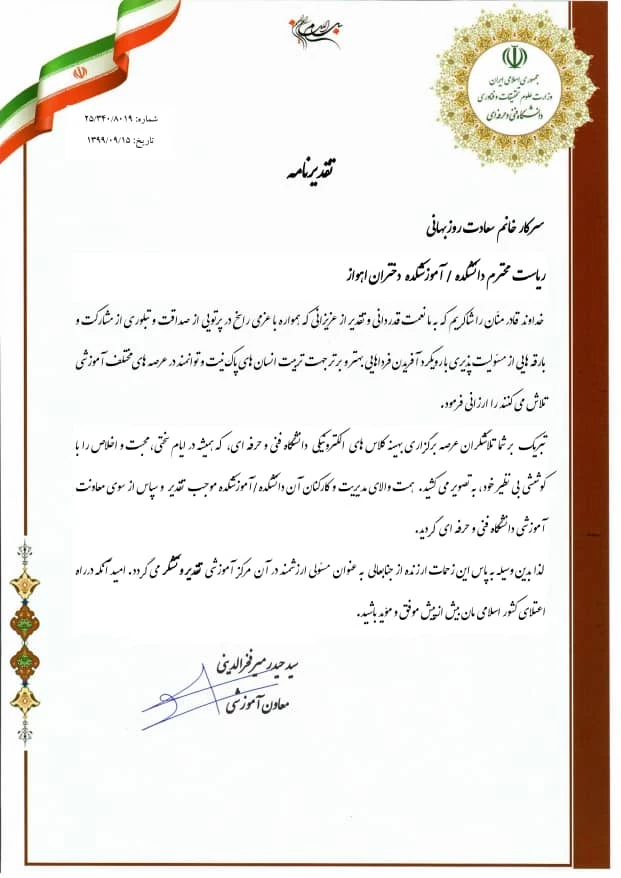 بسم الله الرحمن الرحیم
جمهوری اسلامی ایران
وزارت علوم تحقیقات و فناوری
دانشگاه فنی و حرفه ای
شماره: ۲۵/۳۴۰/۸۰۱۹
تاریخ: ۱۳۹۹/۰۹/۱۵
تقدیرنامه
سرکار خانم سعادت روزبهانی
ریاست محترم دانشکده / آموزشکده دختران اهواز
خداوند قادر منان را شاکریم که به ما نعمت قدردانی و تقدیر از عزیزانی که همواره با عزمی راسخ در پرتویی از صداقت و تبلوری از مشارکت و
بارقه هایی از مسئولیت پذیری با رویکرد آفریدن فرداهایی بهتر و برتر جهت تربیت انسان های پاک نیت و توانمند در عرصه های مختلف آموزشی
تلاش می کنند را ارزانی فرمود.
تبریک بر شما تلاشگران عرصه برگزاری بهینه کلاس های الکترونیکی دانشگاه فنی و حرفه ای، که همیشه در ایام سختی، محبت و اخلاص را با
کوششی بی نظیر خود، به تصویر می کشید. همت والای مدیریت و کارکنان آن دانشکده/آموزشکده موجب تقدیر و سپاس از سوی معاونت
آموزشی دانشگاه فنی و حرفه ای گردید.
لذا بدین وسیله به پاس این زحمات ارزنده از جنابعالی به عنوان مسئولی ارزشمند در آن مرکز آموزشی تقدیر و تشکر می گردد. امید آنکه در راه
اعتلای کشور اسلامی مان بیش از پیش موفق و مؤید باشید.
سید حیدر میرفخرالدینی
معاون آموزشی